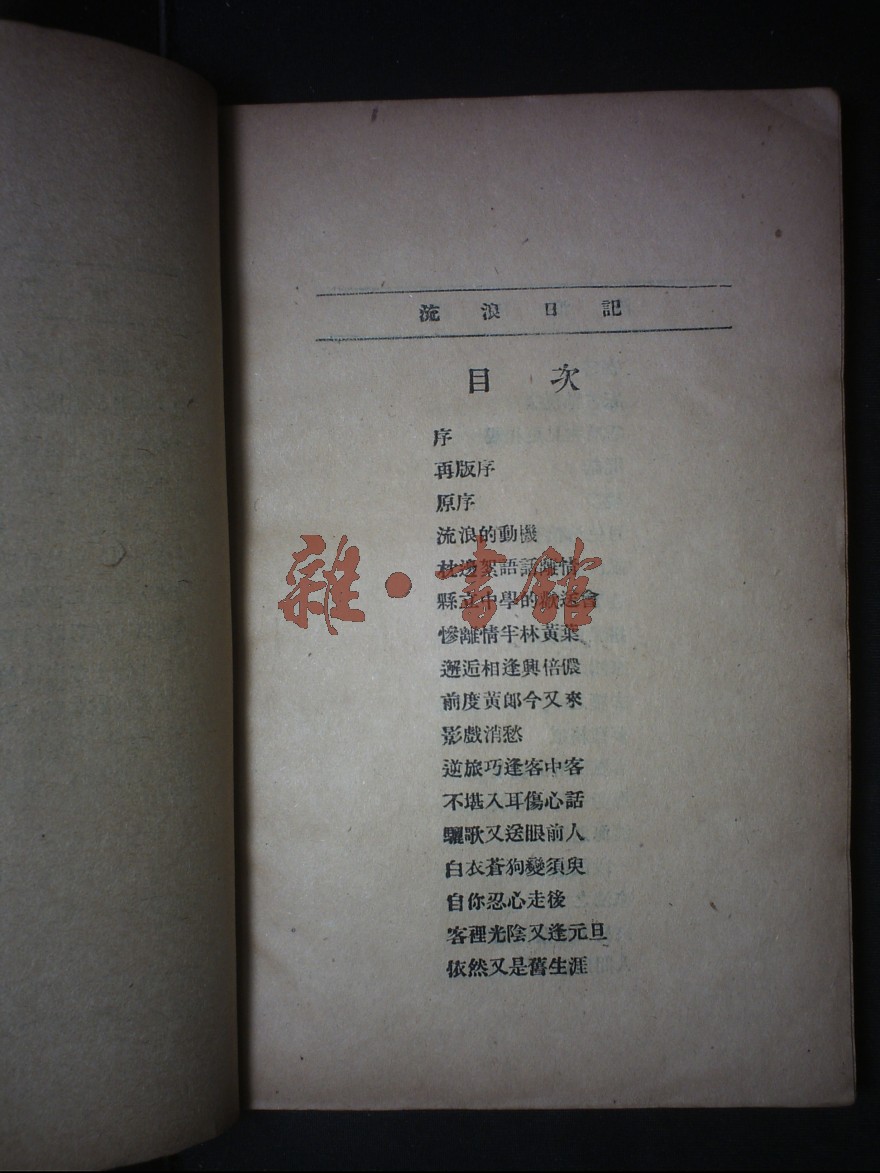 流浪日記
目次
序
再版序
原序
流浪的動機
枕邊絮語話離情
縣立中學的歡送會
慘離情半林黃葉
邂逅相逢興倍儂
前度黃郎今又來
影戲消愁
逆旅巧逢客中客
不堪入耳傷心話
驪歌又送眼前人
白衣蒼狗變須臾
自你忍心走後
客裡光陰又逢元旦
依然又是舊生涯
雜·書館